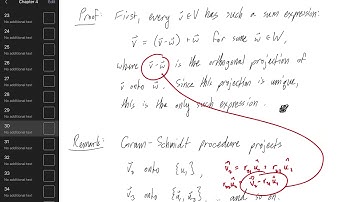 Chapter 4
Edit
23
No additional text
24
No additional text
25
No additional text
26
No additional text
27
No additional text
28
No additional text
29
No additional text
30
No additional text
31
No additional text
32
No additional text
33
No additional text
34
Proof: First, every v⃗ ∈ V has such a sum expression:
v⃗ = (v⃗-w⃗) + w⃗ for some w⃗ ∈ W,
where v⃗-w⃗ is the orthogonal projection of
v⃗ onto W. Since this projection is unique,
this is the only such expression.
Remark: Gram-Schmidt procedure projects
v⃗₂ onto {u⃗₁},
v⃗₃ onto {u⃗₁, u⃗₂}, ... and so on.